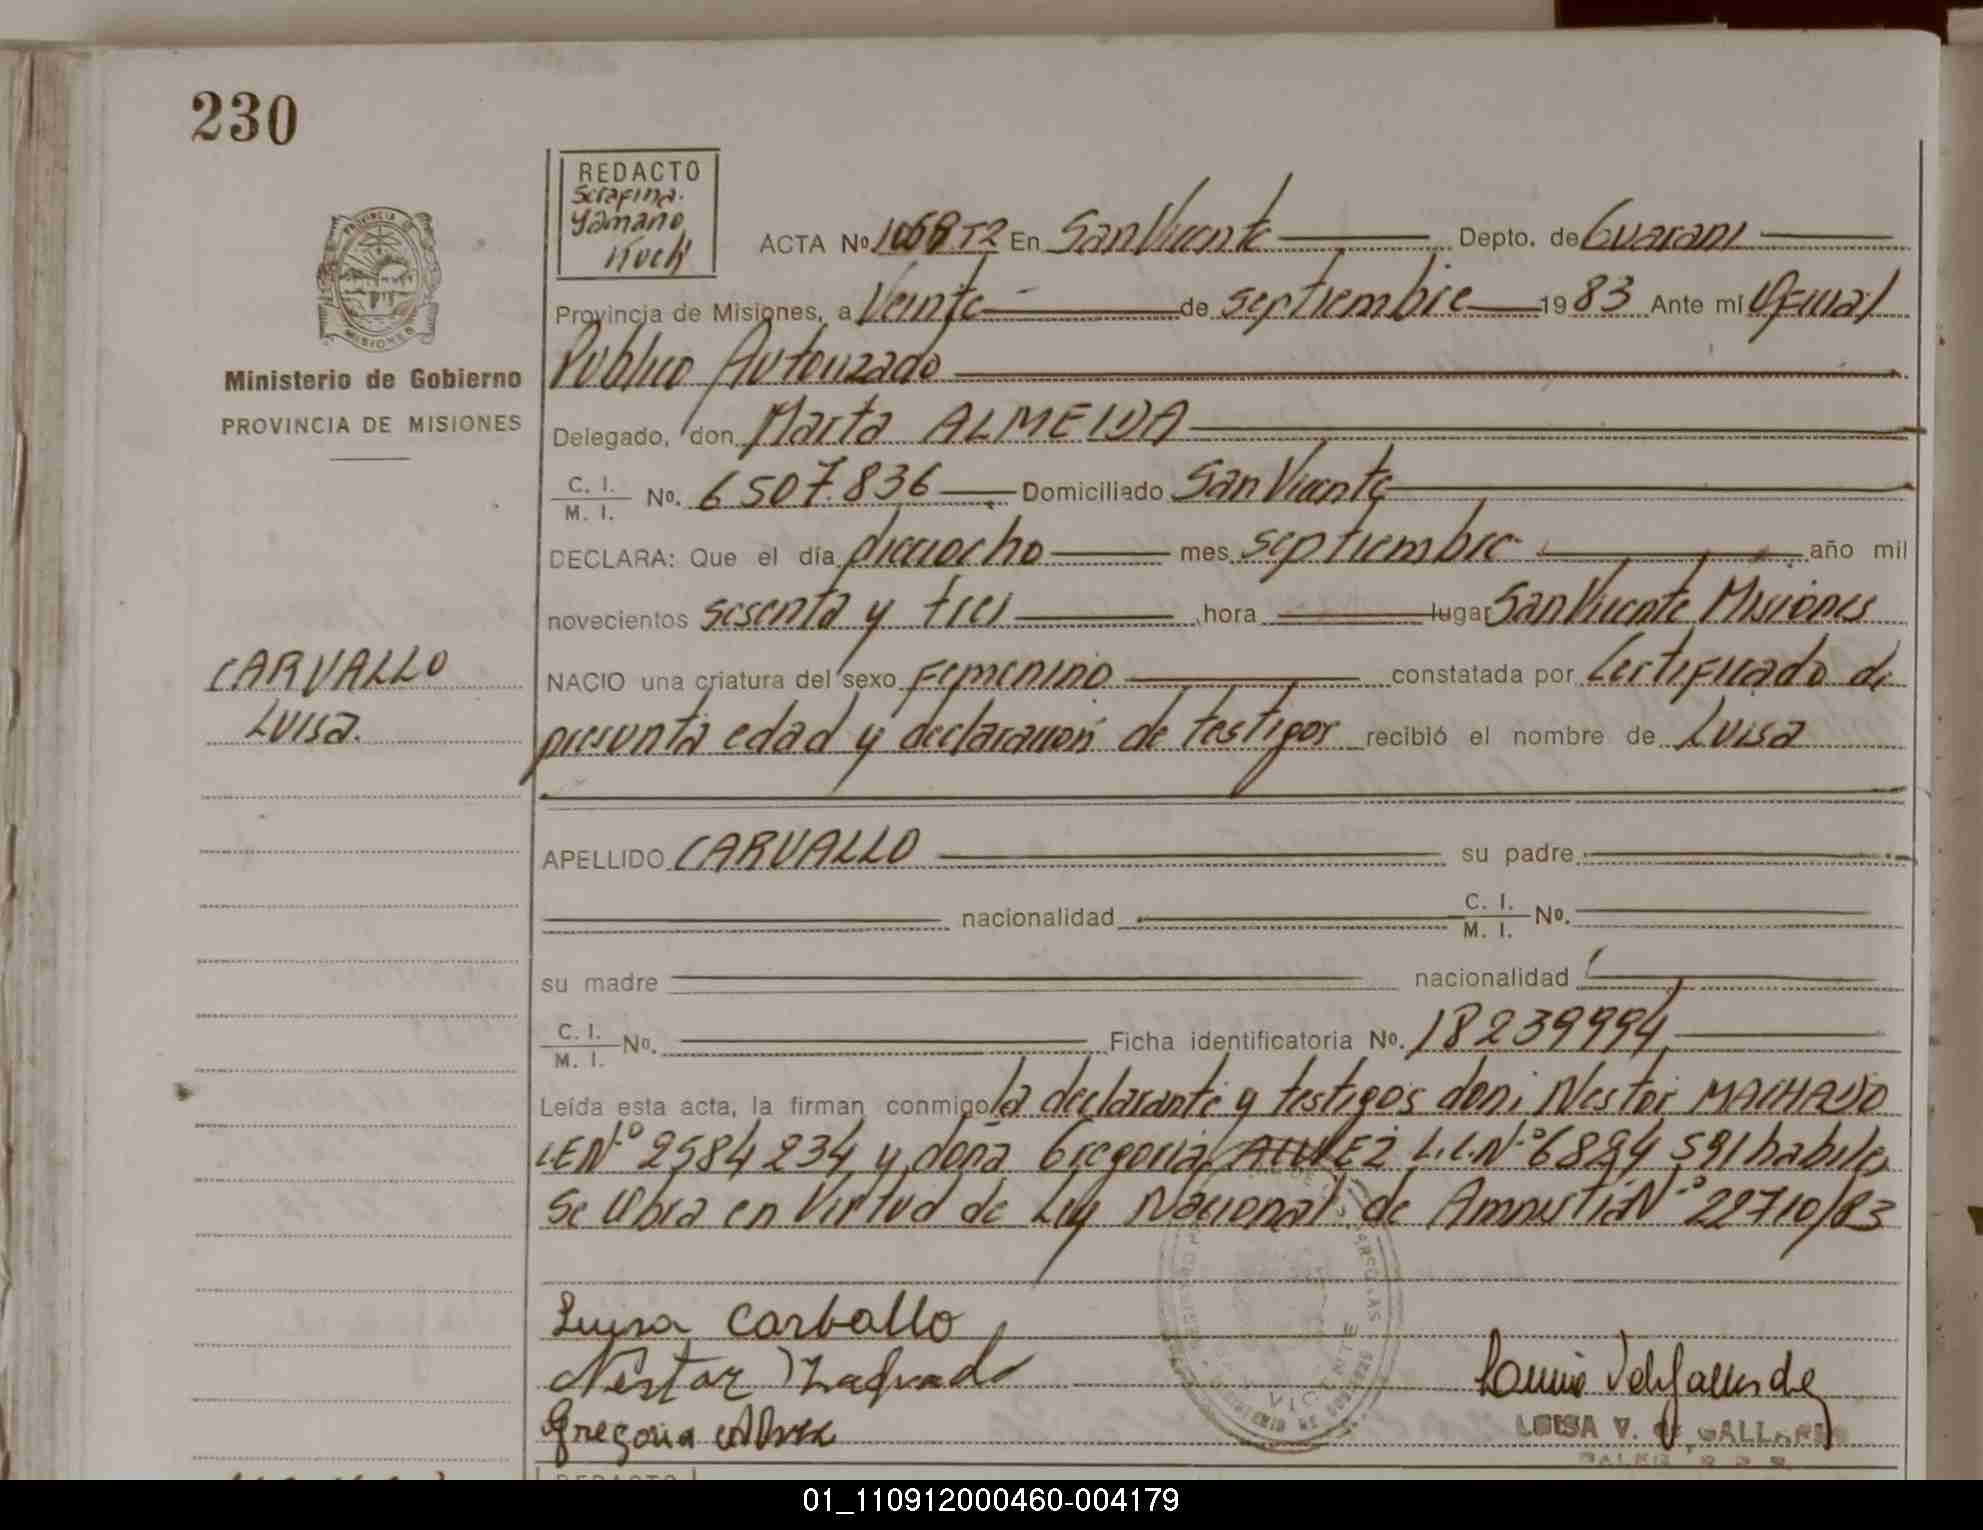 230
REDACTO
Serafina
Yamano
Koch
PROVINCIA DE
MISIONES
ACTA Nº 1068 T2 En San Vicente Depto. de Guarani
Provincia de Misiones, a Veinte de septiembre 1983 Ante mí Oficial
Publico Autorizado
Ministerio de Gobierno
PROVINCIA DE MISIONES
Delegado, don Marta ALMEIDA
C. I.
M. I. Nº. 6507.836 Domiciliado San Vicente
DECLARA: Que el día dieciocho mes septiembre año mil
novecientos sesenta y tres hora lugar San Vicente Misiones
CARVALLO
Luisa.
NACIO una criatura del sexo Femenino constatada por Certificado de
presunta edad y declaración de testigos recibió el nombre de Luisa
APELLIDO CARVALLO su padre
nacionalidad C. I.
M. I. Nº.
su madre nacionalidad
C. I.
M. I. Nº. Ficha identificatoria Nº. 18239994
Leída esta acta, la firman conmigo la declarante y testigos don: Nestor MACHADO
LENº 2584234 y doña Gregoria ALVEZ L.C.Nº 6884591 habiles
Se Obra en Virtud de Ley Nacional de Amnistia Nº 22710/83
Luysa Carballo
Nestor Machado
Gregoria Alvez
VICENTE
MINISTERIO DE GOBIERNO
LUISA V. DE GALLARDO
01_110912000460-004179